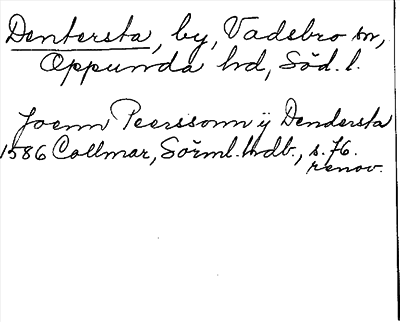 Dentersta, by, Vadsbro sn,
Oppunda hd, Söd. l.
Joenn Peerssonn ÿ Dendersta
1586 Collmar, Sörml. hdb., s. 76.
renov.